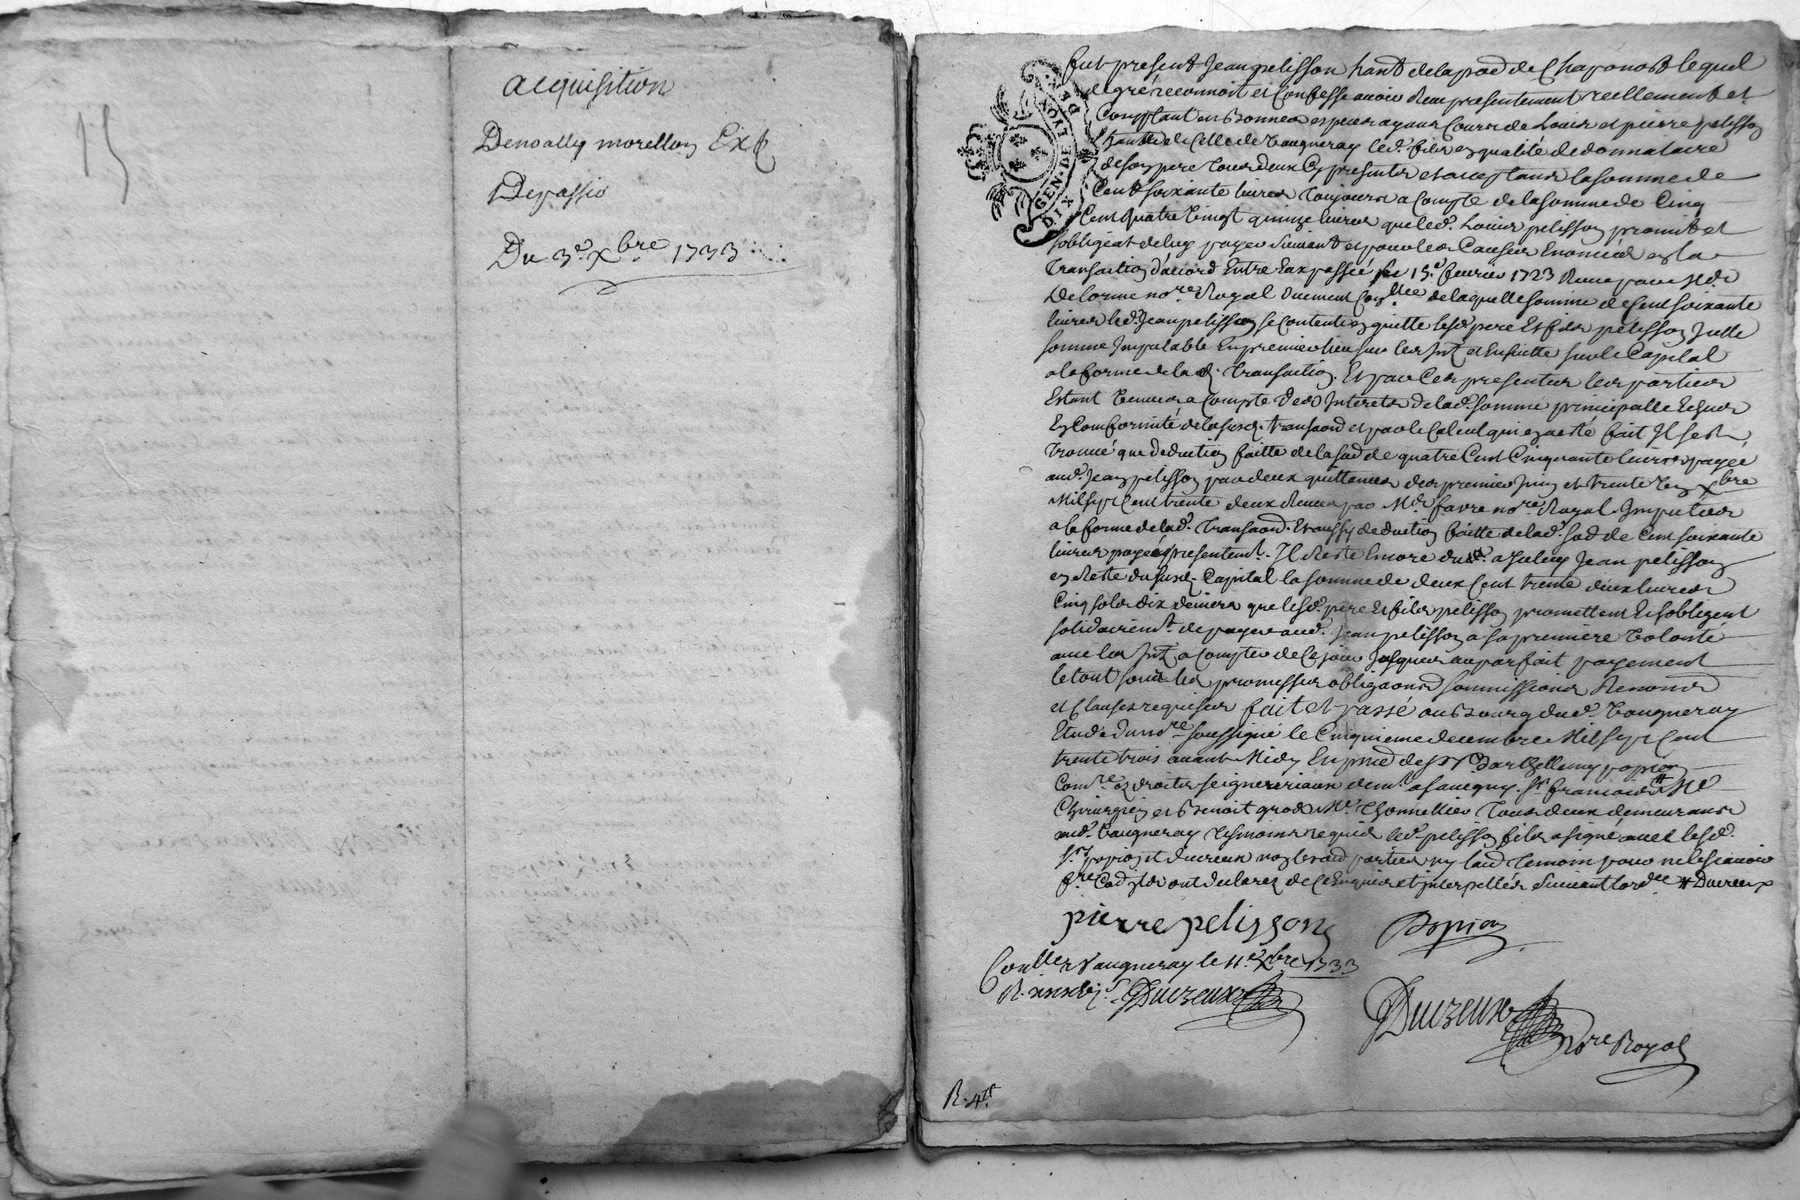 15
acquisition
Denoally morellon Ext
Depassio
Du 3e. Xbre 1733
GEN. DE LYON
DIX DE
fut present Jean pelisson hant de la pae de Chaponost lequel
de gré reconnoit et Confesse avoir Reeu presentement reellement et
Comptant en bonnes especes ayant Cours de Louis et pierre pelisson
hants de Celle de Vaugneray led. fils en qualité de donnataire
de son pere tous deux Cy presents et acceptants la somme de
Cent soixante livres toujours a Compte de la somme de Cinq
Cent quatre vingt quinze livres que led. Louis pelisson promit et
s'obligeat de luy payer suivant et pour les Causes Enoncées en la
Transaction d'accord Entre Eux passé le 15e. fevrier 1723 Reeue par Me
Delorme nore. Royal duement Conllée de laquelle somme de Cent soixante
livres led. Jean pelisson se Contente en quitte lesd. pere Et fils pelisson Jcelle
somme Imputable En premier lieu sur les Jnt. et Ensuitte sur le Capital
a la forme de lad. Transaction. Et par Ces presentes les parties
Estant Venues a Compte des Interets de lad. somme principalle Echus
En Conformité de la susd. transaond et par le Calcul qui en a esté fait Jl s'est
trouvé que deduction faitte de la sod de quatre Cent Cinquante livres payée
aud. Jean pelisson par deux quittances des premier Juin et trente Xbre
Mil sept Cent trente deux Reeues par Me. favre nore. Royal. Imputées
a la forme de lad. Transaond. Et aussy deduction faitte de lad. sod de Cent soixante
livres payée presentemt. Jl Reste Encore du a Jceluy Jean pelisson
en Reste du susd. Capital la somme de deux Cent trente deux livres
Cinq sols dix deniers que lesd. pere Et fils pelisson promettent Et s'obligent
solidairemt. de payer aud. Jean pelisson a sa premiere Volonté
avec les Jnt. a Compter de Ce jour Jusques au parfait payement
le tout sous les promesses obligaons soumissions Renons
et Clauses requises fait et passé au bourg dud. Vaugneray
Etude du nore soussigné le Cinquieme decembre Mil sept Cent
trente trois avant Midy En pnce de Sr. Barthellemy popion
Comre. ez droits seigneuriaux demt. a Savigny. Sr. francois # Me
Chirurgien et Benoit Me. Thonnellier Tous deux demeurants
aud. Vaugneray temoins requis led. pelisson fils a signé avec lesd.
Srs. popion et ducreux non lesd parties ny laud temoin pour ne le scavoir
fre. Cod ils ont declaré de Ce Enquis et interpellés suivant lordce # Ducreux
pierre pelisson
Popion
Conllé a Vaugneray le 11e Xbre 1733
Ducreux
Ducreux
Nore Royal
R. 4tt.